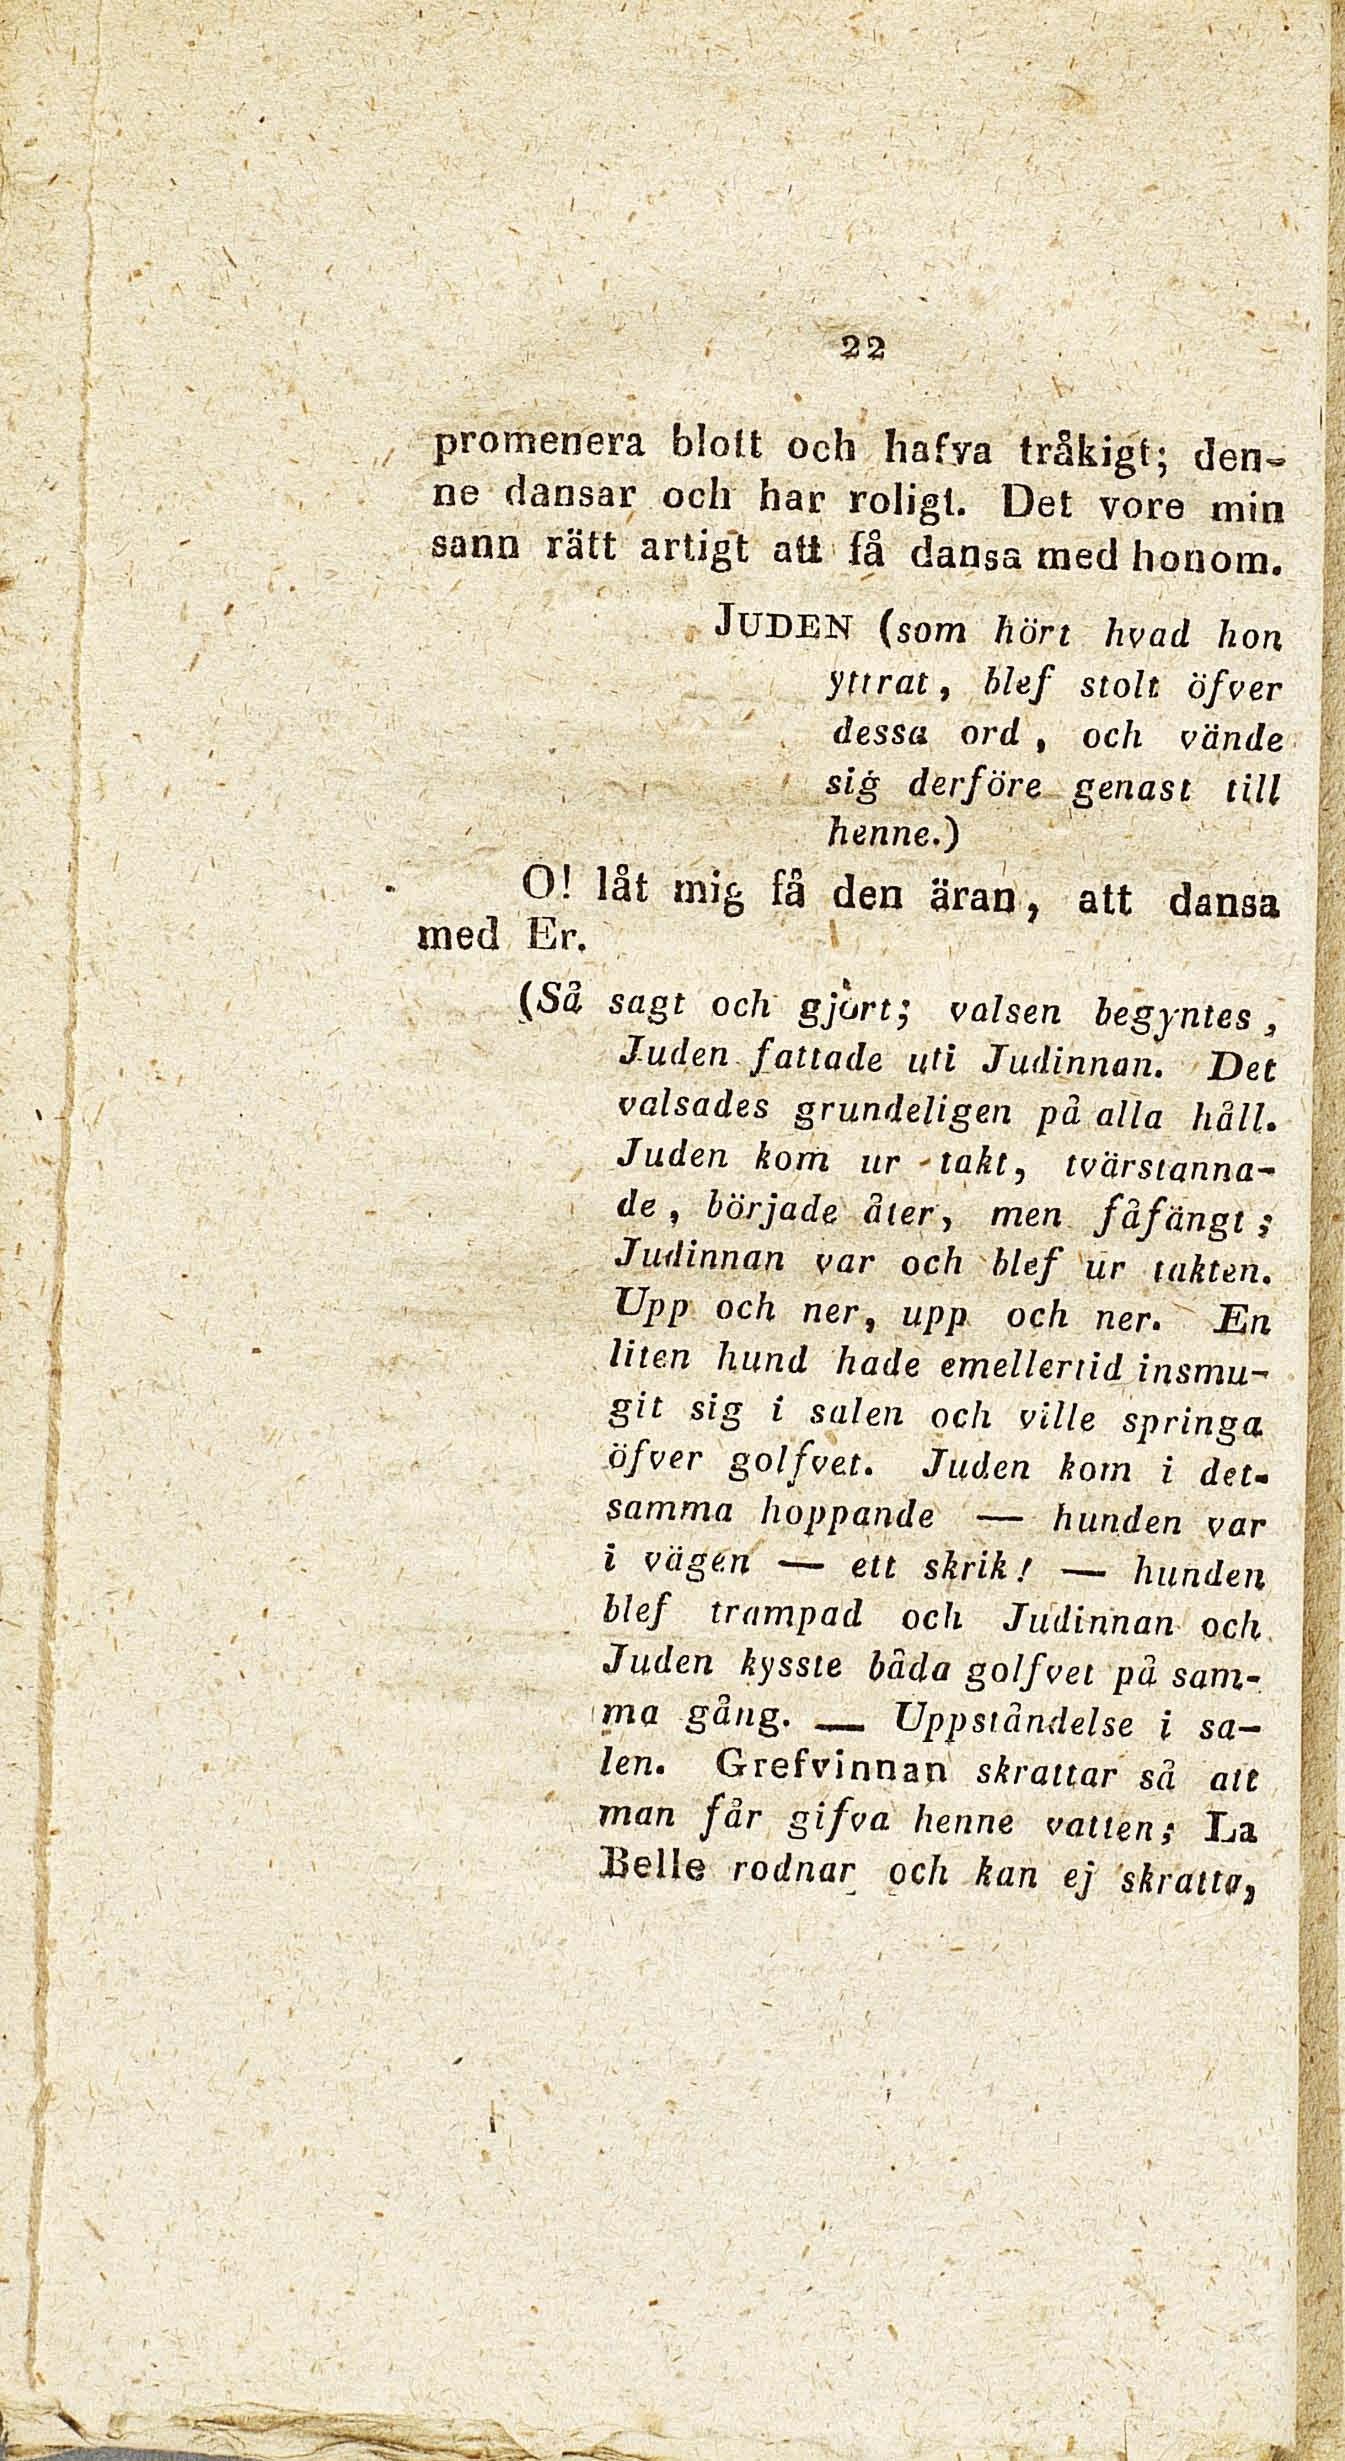 22
promenera blott och hafva tråkigt; den-
ne dansar och har roligt. Det vore min
sann rätt artigt att få dansa med honom.
JUDEN (som hört hvad hon
yttrat, blef stolt öfver
dessa ord, och vände
sig derföre genast till
henne.)
O! låt mig få den äran, att dansa
med Er.
(Så sagt och gjort; valsen begyntes,
Juden fattade uti Judinnan. Det
valsades grundeligen på alla håll.
Juden kom ur takt, tvärstanna-
de, började åter, men fåfängt;
Judinnan var och blef ur takten.
Upp och ner, upp och ner. En
liten hund hade emellertid insmu-
git sig i salen och ville springa
öfver golfvet. Juden kom i det-
samma hoppande — hunden var
i vägen — ett skrik! — hunden
blef trampad och Judinnan och
Juden kysste båda golfvet på sam-
ma gång. — Uppståndelse i sa-
len. Grefvinnan skrattar så att
man får gifva henne vatten; La
Belle rodnar och kan ej skratta,